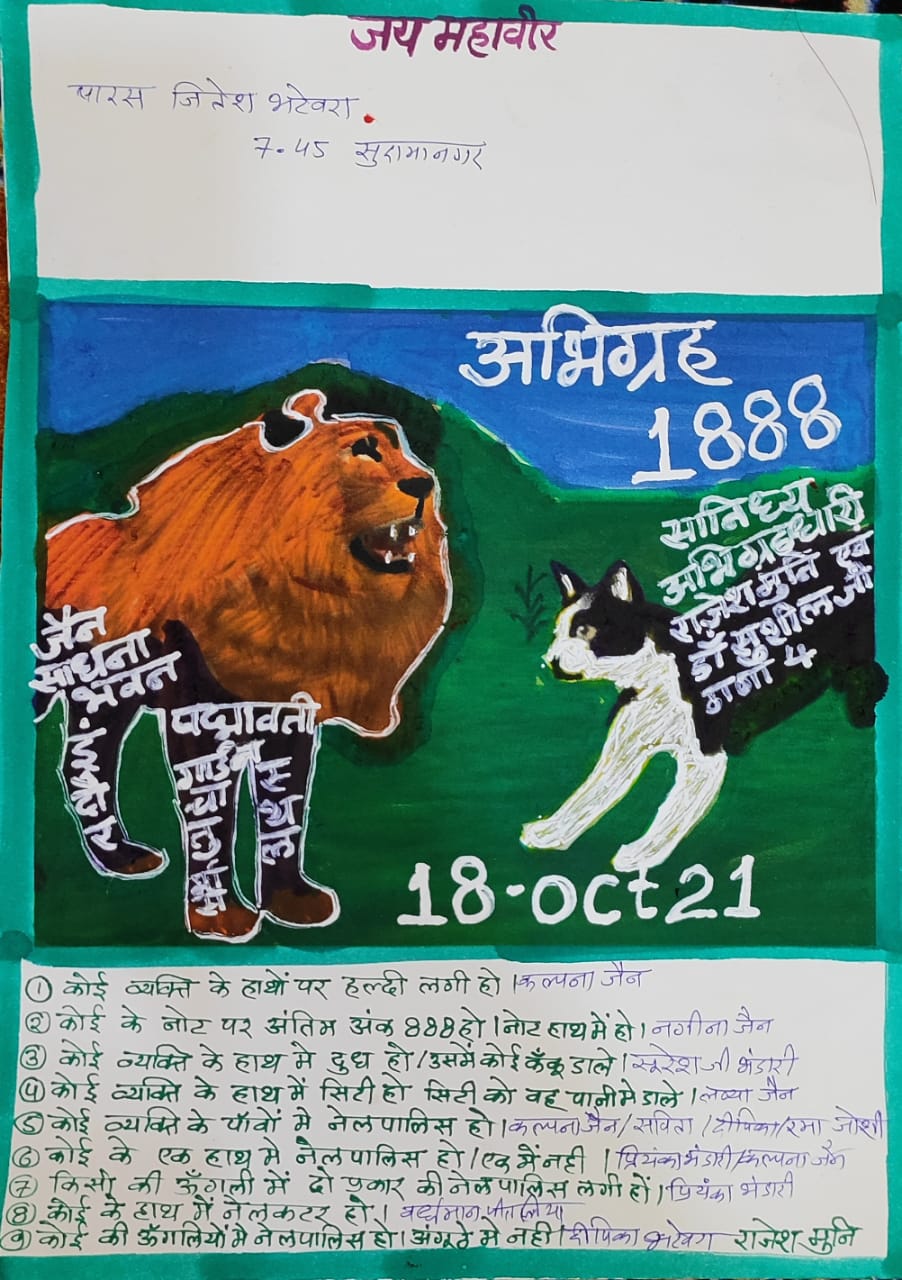 जय महावीर
पारस जितेश भटेवरा.
7.45 सुदामानगर
अभिग्रह
1888
सानिध्य
अभिग्रहधारी
राजेश मुनि एवं
डॉ सुशील जी
ठाना 4
जैन
साधना
भवन
इंदौर
पद्मावती
गार्डन
स्थल
18-oct 21
① कोई व्यक्ति के हाथों पर हल्दी लगी हो। कल्पना जैन
② कोई के नोट पर अंतिम अंक 888 हो। नोट हाथ में हो। नगीना जैन
③ कोई व्यक्ति के हाथ मे दुध हो। उसमें कोई कँकू डाले। सूरेश जी भंडारी
④ कोई व्यक्ति के हाथ में सिटी हो सिटी को वह पानी मे डाले। जैन
⑤ कोई व्यक्ति के पॉवों मे नेलपालिस हो। कल्पना जैन / सविता / दीपिका / रमा जोशी
⑥ कोई के एक हाथ मे नेलपालिस हो। एक में नही । प्रियंका भंडारी / कल्पना जैन
⑦ किसी की ऊँगली में दो प्रकार की नेलपालिस लगी हों। प्रियंका भंडारी
⑧ कोई के हाथ में नेलकटर हो। वर्द्धमान पीतलिया
⑨ कोई की ऊँगलियों मे नेलपालिस हो। अंगूठे मे नही। दीपिका भटेवरा राजेश मुनि